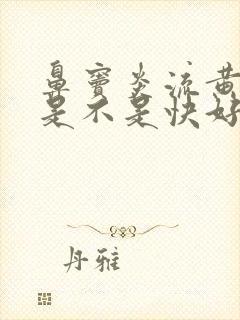 鼻窦炎流黄
是不是快好
丹雅